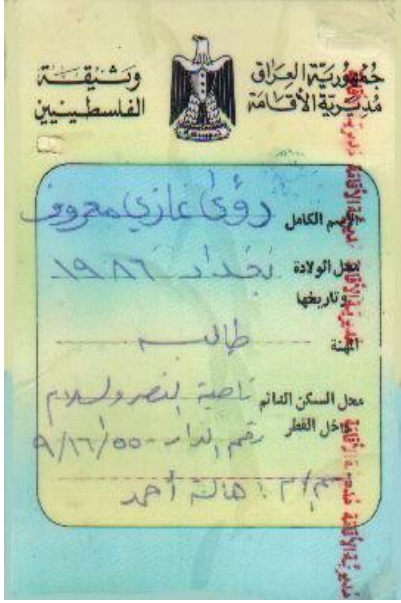 جمهورية العراق
مديرية الأقامة
وثيقة
الفلسطينيين
الاسم الكامل رؤى غازي معروف
محل الولادة بغداد ١٩٨٦
وتاريخها
المهنة طالبة
محل السكن الدائم ناحية النصر والسلام
داخل القطر رقم الدار ٩/١٦/٥٥
م/م: هالة أحمد